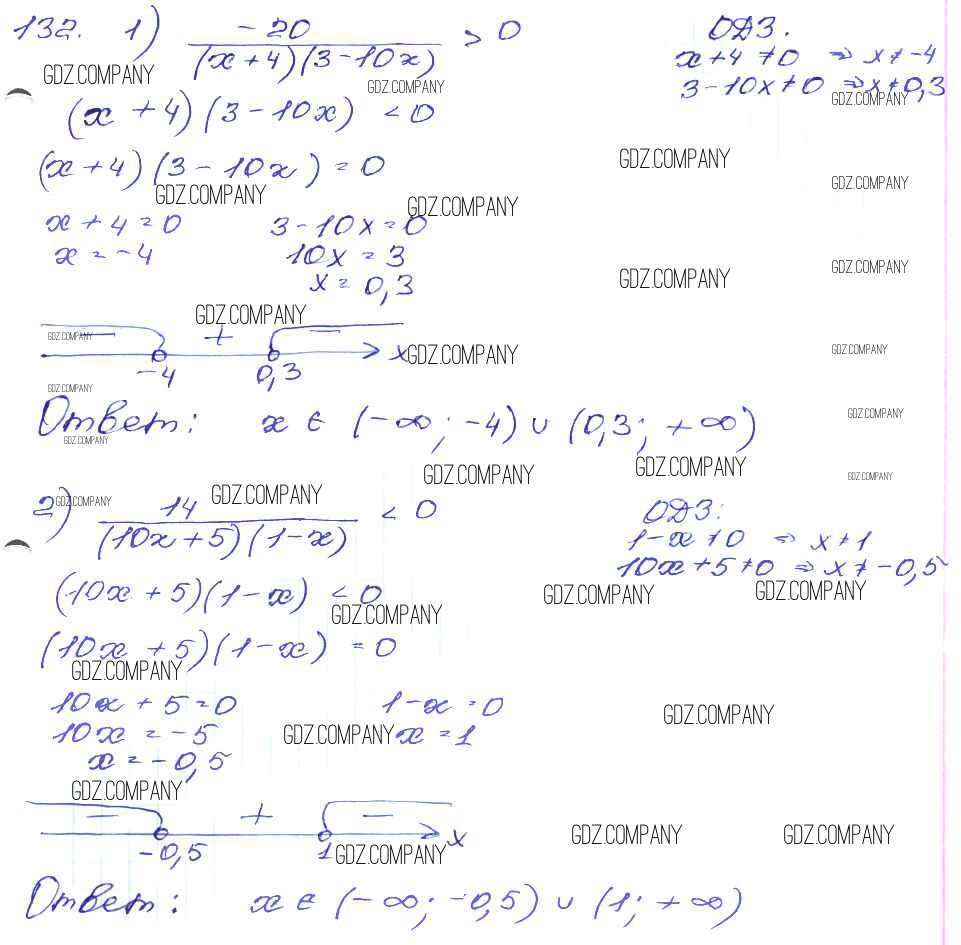 132. 1) -20 / (x+4)(3-10x) > 0
ОДЗ.
x+4≠0 ⇒ x≠-4
3-10x≠0 ⇒ x≠0,3
GDZ.COMPANY GDZ.COMPANY GDZ.COMPANY
(x+4)(3-10x) < 0
GDZ.COMPANY
(x+4)(3-10x) = 0
GDZ.COMPANY GDZ.COMPANY GDZ.COMPANY
x+4=0 3-10x=0
x=-4 10x=3
GDZ.COMPANY GDZ.COMPANY
x=0,3
GDZ.COMPANY
GDZ.COMPANY - + - x GDZ.COMPANY GDZ.COMPANY
-4 0,3
GDZ.COMPANY
Ответ: x ∈ (-∞; -4) ∪ (0,3; +∞)
GDZ.COMPANY
GDZ.COMPANY
GDZ.COMPANY GDZ.COMPANY GDZ.COMPANY
GDZ.COMPANY GDZ.COMPANY
2) 14 / (10x+5)(1-x) < 0
ОДЗ:
1-x≠0 ⇒ x≠1
10x+5≠0 ⇒ x≠-0,5
(10x+5)(1-x) < 0
GDZ.COMPANY GDZ.COMPANY GDZ.COMPANY
(10x+5)(1-x) = 0
GDZ.COMPANY
10x+5=0 1-x=0
GDZ.COMPANY
10x=-5 GDZ.COMPANY x=1
x=-0,5
GDZ.COMPANY
- + - x
GDZ.COMPANY GDZ.COMPANY
-0,5 1 GDZ.COMPANY
Ответ: x ∈ (-∞; -0,5) ∪ (1; +∞)